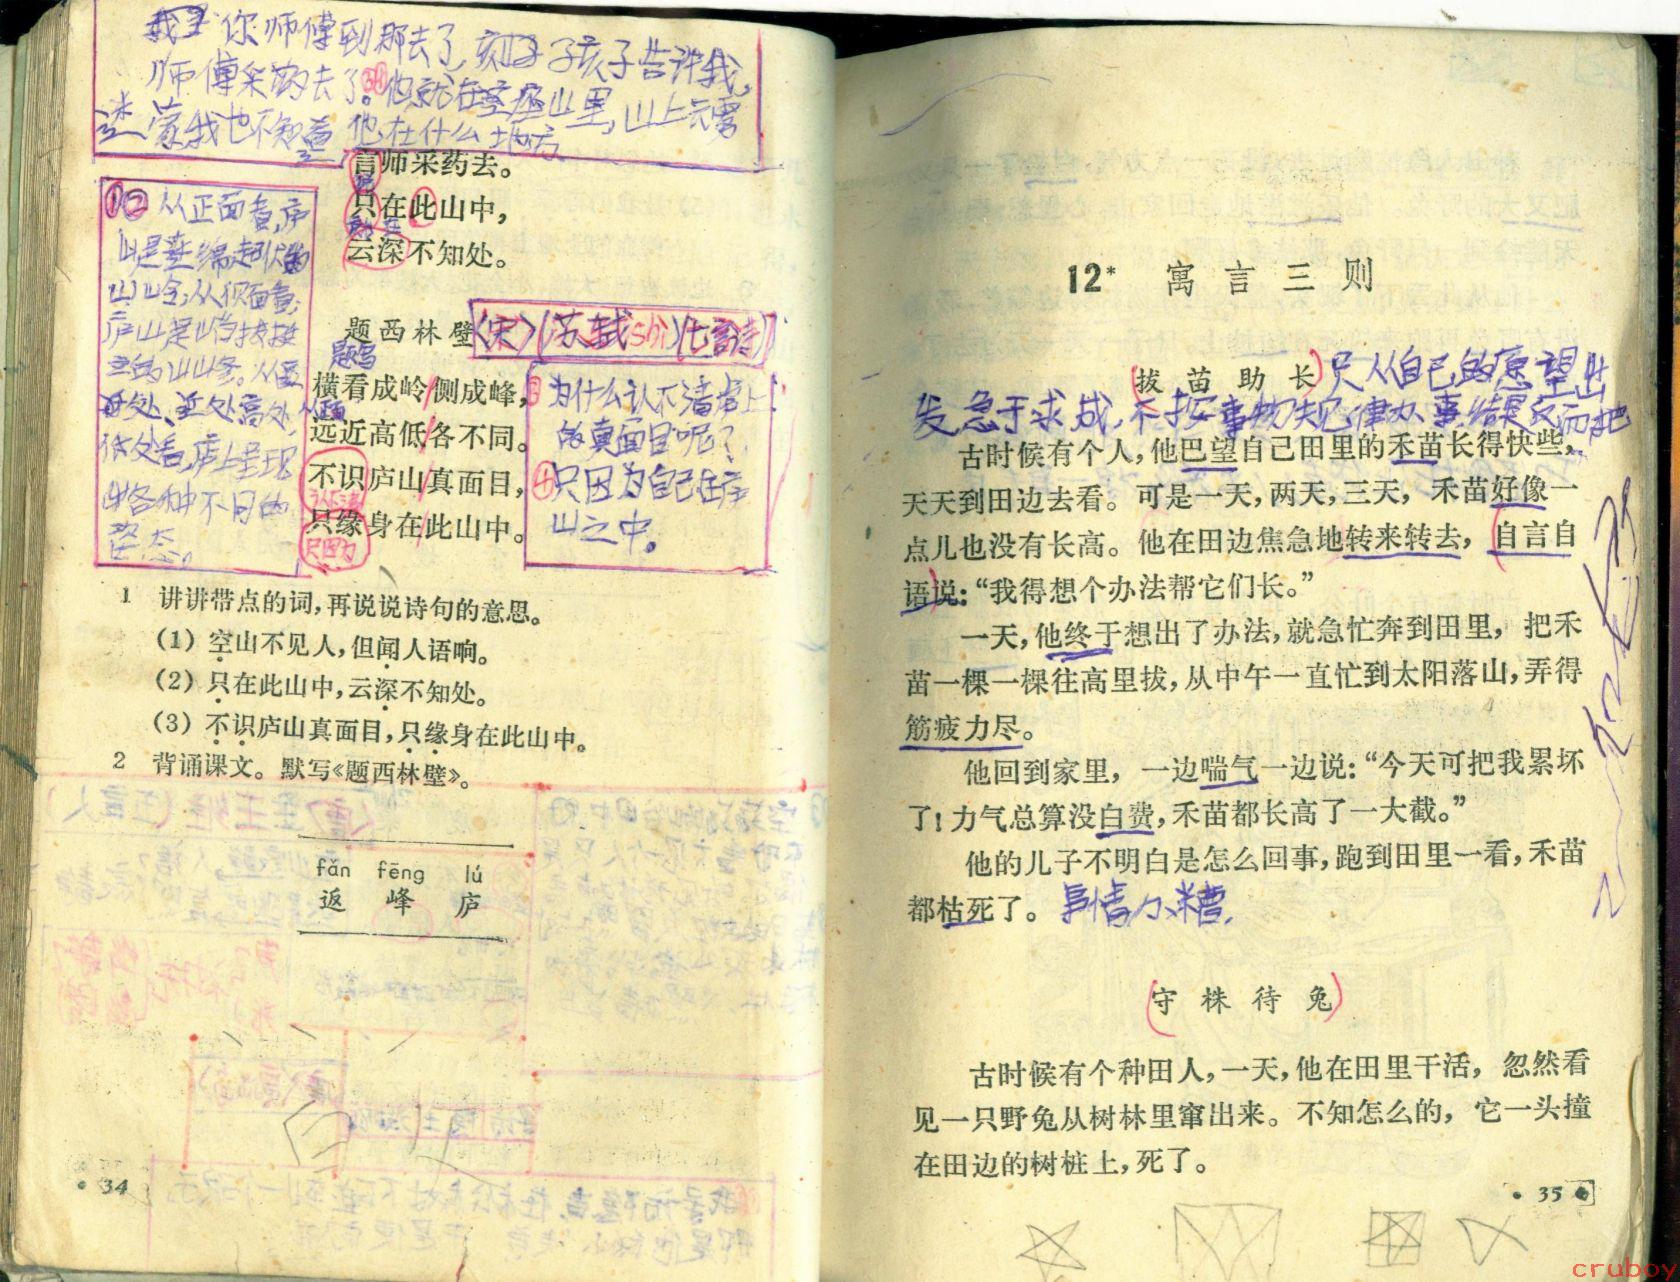 你师傅到那去了,孩子告诉我,
师傅采药去了。他就在这座山里,山上云雾
迷蒙,我也不知道他在什么地方。
言师采药去。
只在此山中,
云深不知处。
①② 从正面看,庐
山是连绵起伏的
山岭,从侧面看,
题西林壁
〈宋〉(苏轼shi)(七言诗)
横看成岭侧成峰,
远近高低各不同。
不识庐山真面目,
认不清
只缘身在此山中。
只因为
为什么认不清庐山
的真面目呢?
④只因为自己在庐
山之中。
低处看,庐山呈现
出各种不同的
姿态。
1 讲讲带点的词,再说说诗句的意思。
(1) 空山不见人,但闻人语响。
(2) 只在此山中,云深不知处。
(3) 不识庐山真面目,只缘身在此山中。
2 背诵课文。默写《题西林壁》。
fǎn fēng lú
返 峰 庐
• 34
12* 寓言三则
拔苗助长 只从自己的愿望出
发,急于求成,不按事物规律办事,结果反而把
古时候有个人,他巴望自己田里的禾苗长得快些,
天天到田边去看。可是一天,两天,三天,禾苗好像一
点儿也没有长高。他在田边焦急地转来转去,自言自
语说:“我得想个办法帮它们长。”
一天,他终于想出了办法,就急忙奔到田里,把禾
苗一棵一棵往高里拔,从中午一直忙到太阳落山,弄得
筋疲力尽。
他回到家里,一边喘气一边说:“今天可把我累坏
了!力气总算没白费,禾苗都长高了一大截。”
他的儿子不明白是怎么回事,跑到田里一看,禾苗
都枯死了。
事情办糟。
守株待兔
古时候有个种田人,一天,他在田里干活,忽然看
见一只野兔从树林里窜出来。不知怎么的,它一头撞
在田边的树桩上,死了。
• 35 •
cruboy